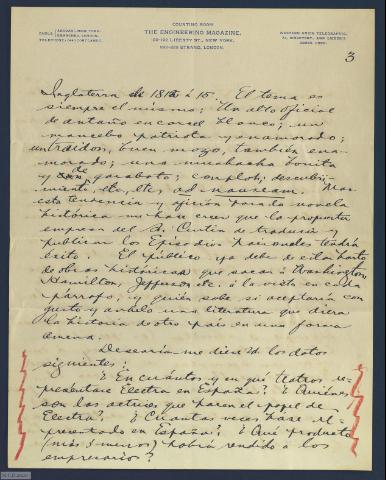 COUNTING ROOM
THE ENGINEERING MAGAZINE,
120-122 LIBERTY ST., NEW YORK.
222-225 STRAND, LONDON.
3
Inglaterra de 1812 á 15. El tema es
siempre el mismo; Un alto oficial
de antaño en corcel blanco; un
mancebo patriota y enamorado;
un traidor, buen mozo, también ena-
morado; una muchacha bonita
y de garabato; complot, descubri-
miento, etc, etc, ad nauseam. Mas
esta tendencia y afición para la novela
histórica me hace creer que la propuesta
empresa del Sr. Curtin de traducir y
publicar los Episodios Nacionales tendrá
éxito. El público ya debe de estar harto
de obras históricas que sacan á Washington,
Hamilton, Jefferson, etc. á la vista en cada
párrafo; y quién sabe si aceptarán con
gusto y anhelo una literatura que diera
la historia de otro país en una forma
amena.
Desearía me diese Vd. los datos
siguientes:
¿ En cuántos y en qué teatros re-
presentase Electra en España? ¿ Quiénes
son las actrices que hacen el papel de
Electra? ¿ Cuantas veces hase re-
presentado en España? ¿ Qué producto
(más ó menos) habrá rendido á los
empresarios?